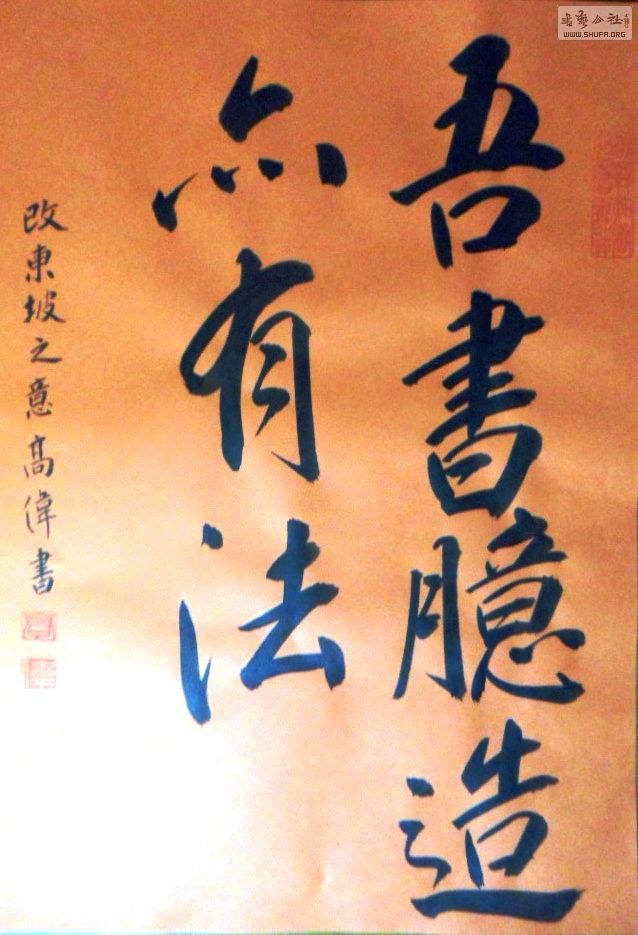 吾書臆造
亦有法
改東坡之意高偉書
書藝公社
WWW.SHUFA.ORG